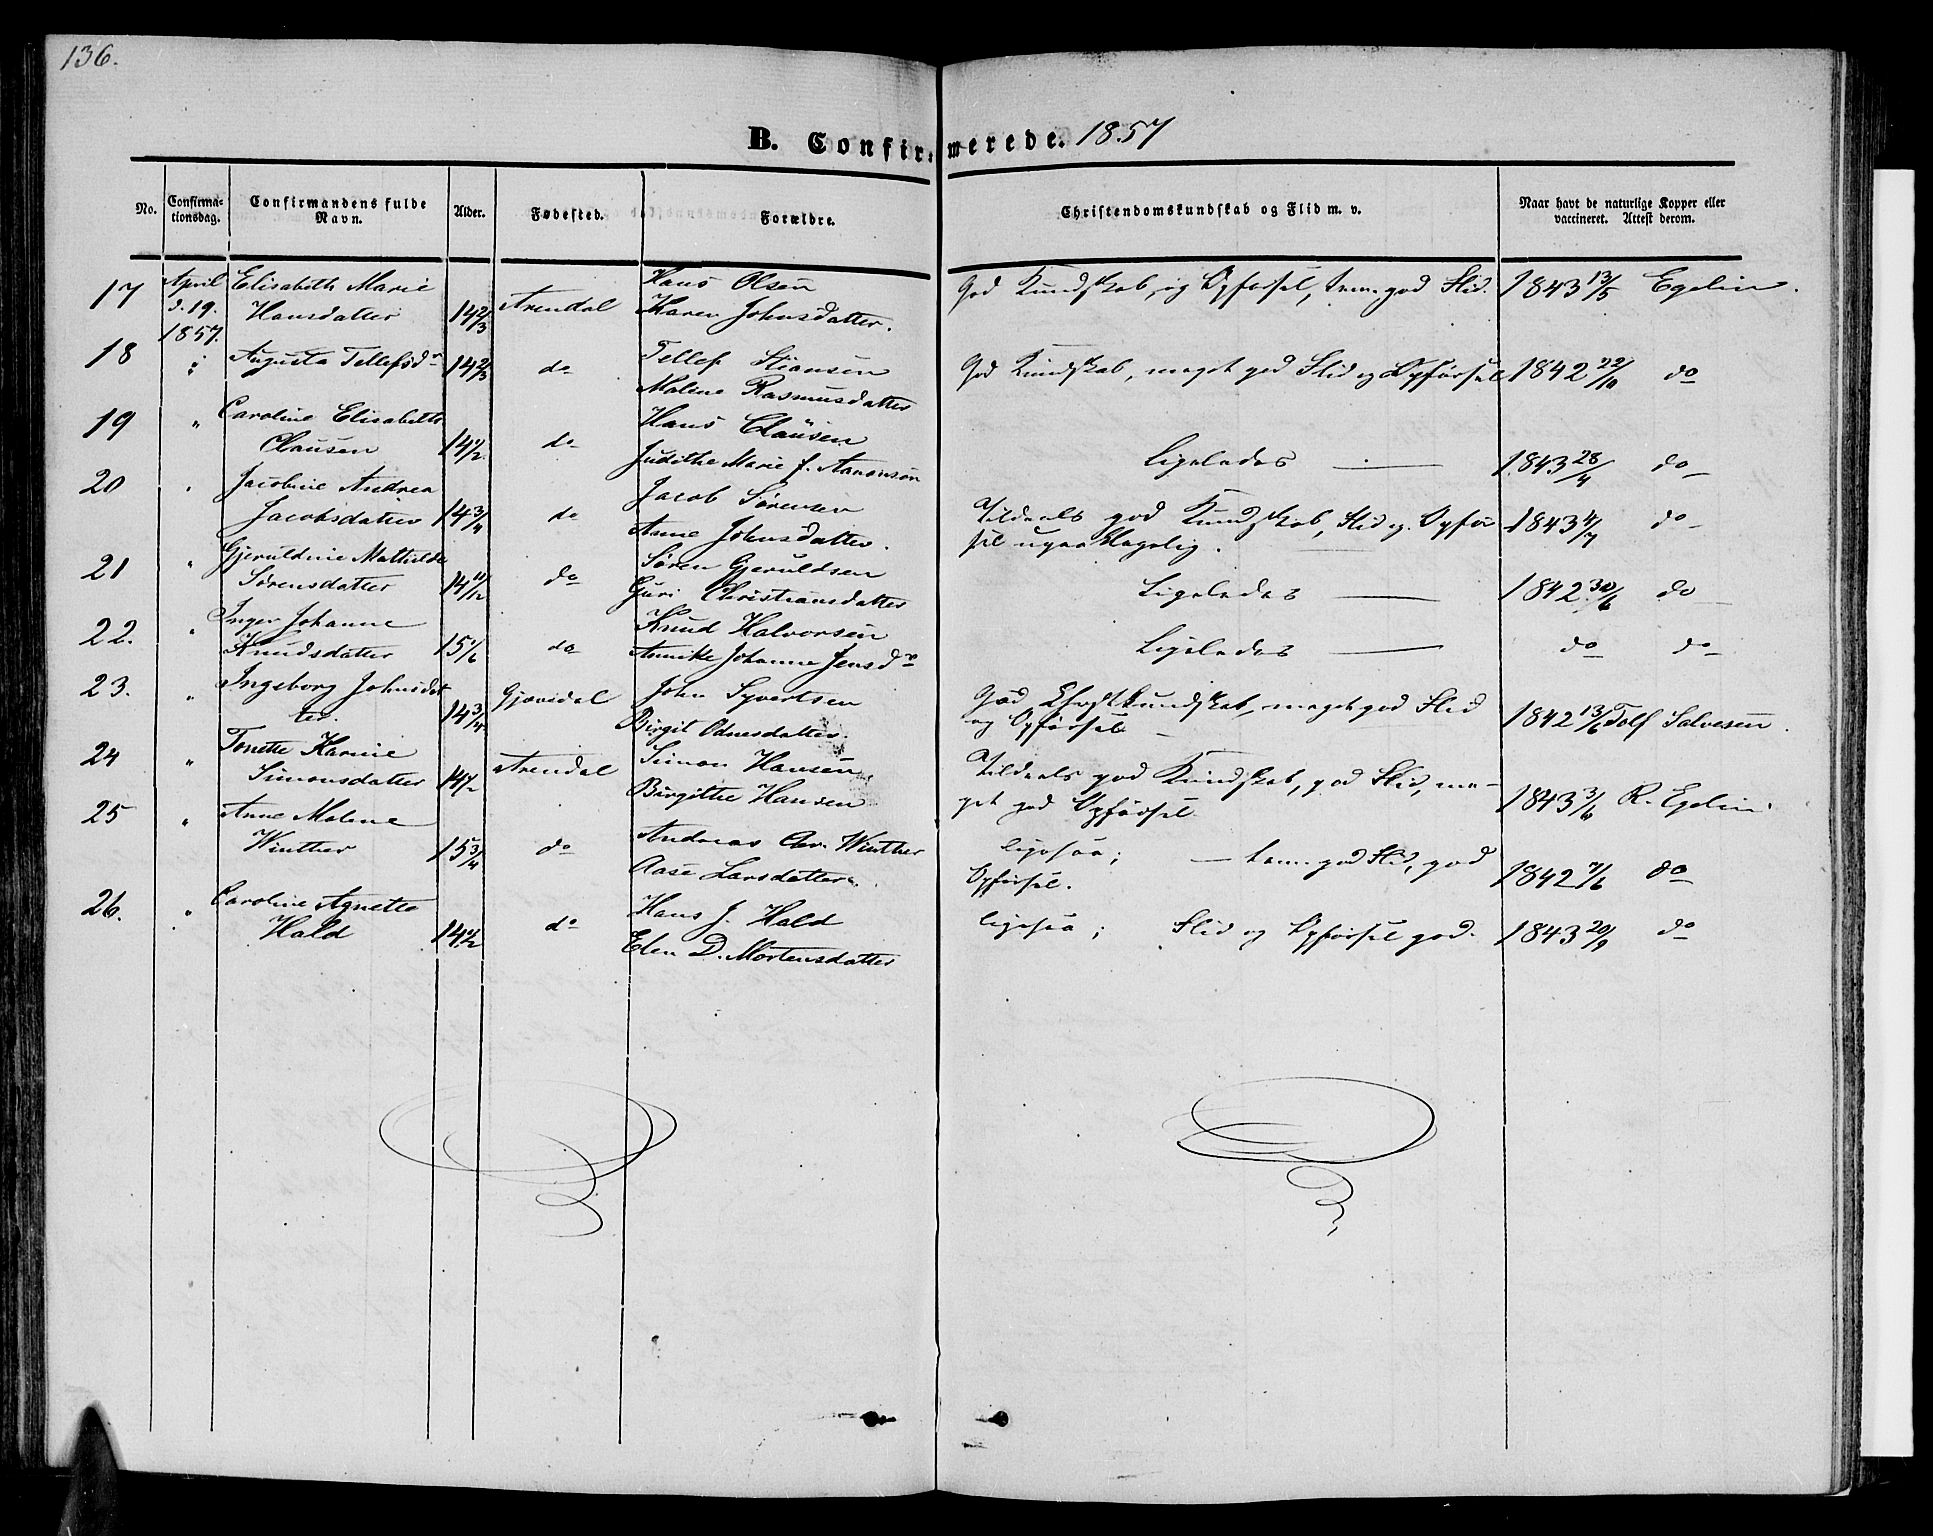 136.
B. Confirmerede. 1857
No. Confirmationsdag. Confirmandens fulde Navn. Alder. Fødested. Forældre. Christendomskundskab og Flid m. v. Naar havt de naturlige Kopper eller vaccineret. Attest derom.
17 April Elisabeth Marie Hans Olsen
d. 19. Hansdatter 14 2/3 Arendal Maren Johnsdatter. God Kundskab, og Opførsel, tem. god Flid. 1843 13/5 Egelin.
1857.
18 " Augusta Tellefsdr 14 2/3 do Tellef Stiansen God Kundskab, meget god Flid og Opførsel 1842 22/10 do
Malene Rasmusdatter
19 " Caroline Elisabeth Hans Clausen
Clausen 14 1/2 do Judithe Marie f. Aanonsen Ligeledes — 1843 28/4 do
20 " Jacobine Andrea Jacob Sørensen
Jacobsdatter 14 3/4 do Anne Johnsdatter. Tildeels god Kundskab, Flid og Opfør 1843 4/7 do
sel upaaklagelig.
21 " Gjeruldine Mathilde Søren Gjeruldsen
Sørensdatter 14 11/12 do Guri Christiansdatter Ligeledes — 1842 30/6 do
22. " Inger Johanne Knud Halvorsen
Knudsdatter 15 1/6 do Annike Johanne Jensdr Ligeledes — do do
23. " Ingeborg Johnsdat John Syvertsen God Kundskab, meget god Flid
ter. 14 3/4 Gjævedal Birgit Odnesdatter. og Opførsel 1842 13/6 Tolf Salvesen.
24 " Tonette Karine Simon Hansen Tildeels god Kundskab, god Flid, me-
Simonsdatter 14 1/2 Arendal Birgithe Hansen get god Opførsel 1843 3/6 R. Egelin.
25 " Anne Malene Andreas Chr. Winther ligesaa; — tem. god Flid, god
Winther 15 3/4 do Aase Larsdatter. Opførsel. 1842 7/6 do
26. " Caroline Agnette Hans J. Hald ligesaa; Flid og Opførsel god. 1843 20/9 do
Hald 14 1/2 do Elen D. Mortensdatter